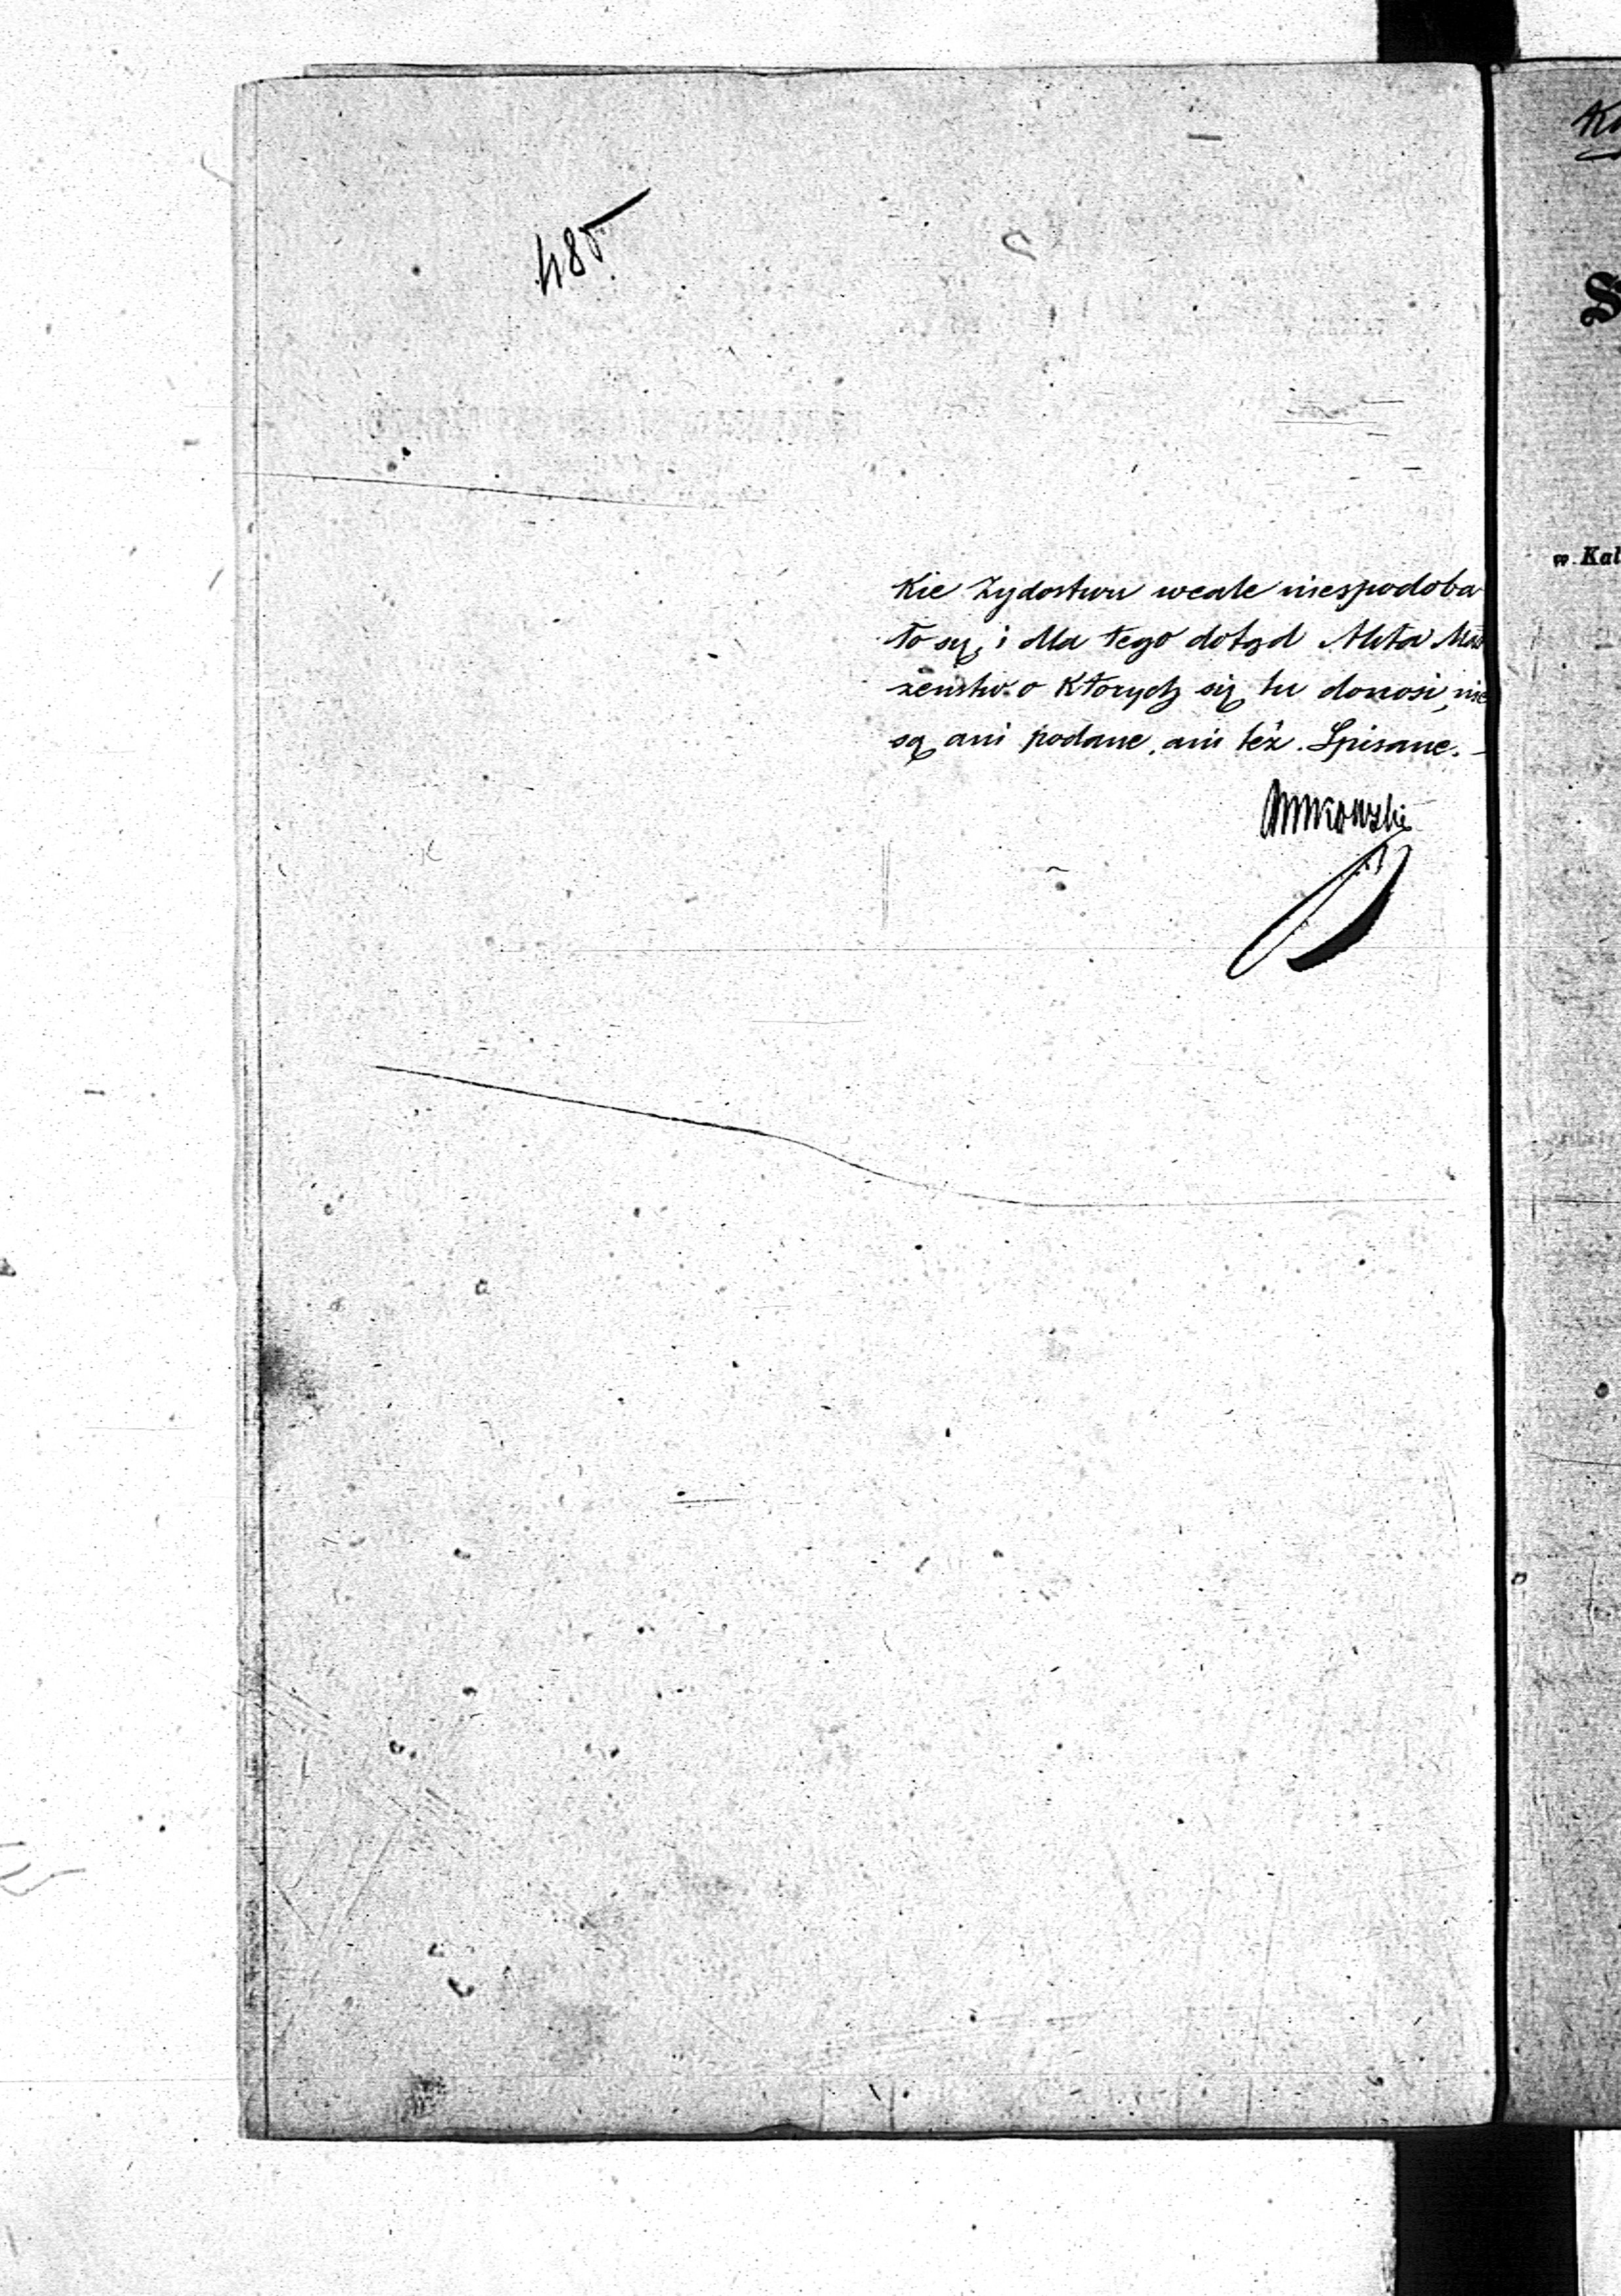 485
Kie Zydostwu weale niespodoba
ło się, i dla tego dotąd Akta Mał
zenstw o Ktorych się tu donosi, nie
są ani podane, ani też Spisane. -
w Kal